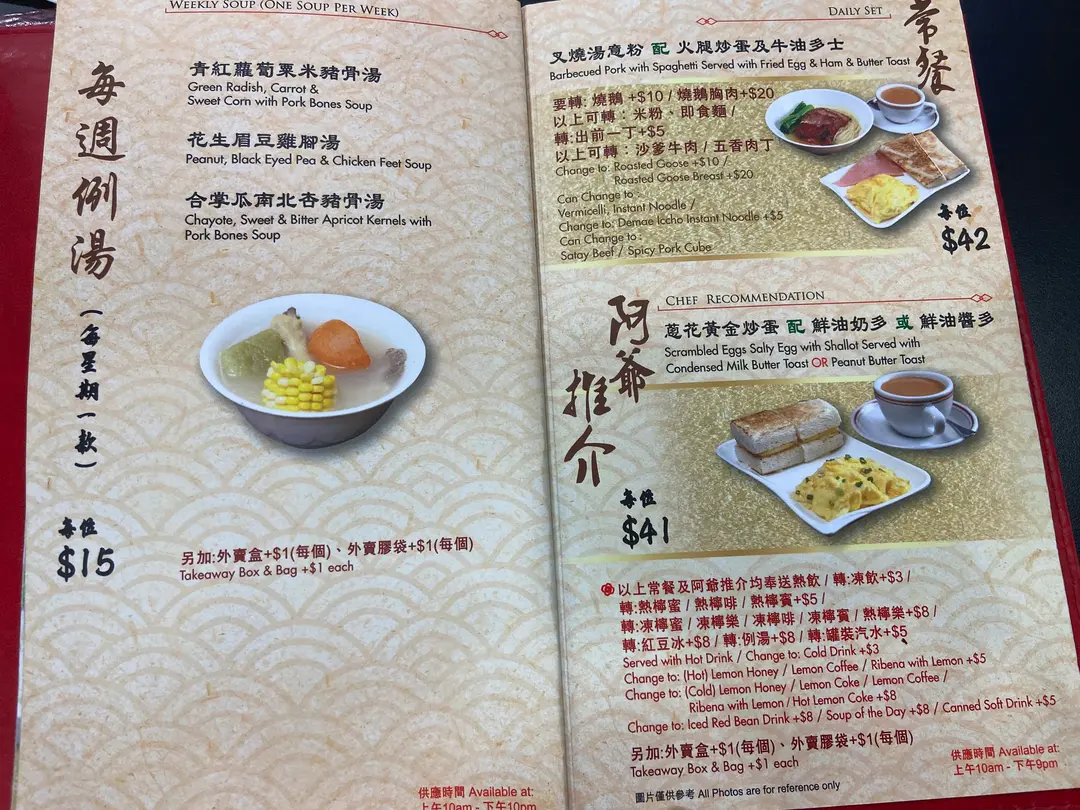 WEEKLY SOUP (ONE SOUP PER WEEK)
每週例湯
(每星期一款)
青紅蘿蔔栗米豬骨湯
Green Radish, Carrot &
Sweet Corn with Pork Bones Soup
花生眉豆雞腳湯
Peanut, Black Eyed Pea & Chicken Feet Soup
合掌瓜南北杏豬骨湯
Chayote, Sweet & Bitter Apricot Kernels with
Pork Bones Soup
每位
$15
另加:外賣盒+$1(每個)、外賣膠袋+$1(每個)
Takeaway Box & Bag +$1 each
供應時間 Available at:
上午10am - 下午10pm
DAILY SET
常餐
叉燒湯意粉 配 火腿炒蛋及牛油多士
Barbecued Pork with Spaghetti Served with Fried Egg & Ham & Butter Toast
要轉: 燒鵝 +$10 / 燒鵝胸肉+$20
以上可轉：米粉、即食麵 /
轉:出前一丁+$5
以上可轉：沙爹牛肉 / 五香肉丁
Change to: Roasted Goose +$10 /
Roasted Goose Breast +$20
Can Change to :
Vermicelli, Instant Noodle /
Change to: Demae Iccho Instant Noodle +$5
Can Change to :
Satay Beef / Spicy Pork Cube
每位
$42
阿爺推介
CHEF RECOMMENDATION
蔥花黃金炒蛋 配 鮮油奶多 或 鮮油醬多
Scrambled Eggs Salty Egg with Shallot Served with
Condensed Milk Butter Toast OR Peanut Butter Toast
每位
$41
以上常餐及阿爺推介均奉送熱飲 / 轉:凍飲+$3 /
轉:熱檸蜜 / 熱檸啡 / 熱檸賓+$5 /
轉:凍檸蜜 / 凍檸樂 / 凍檸啡 / 凍檸賓 / 熱檸樂+$8 /
轉:紅豆冰+$8 / 轉:例湯+$8 / 轉:罐裝汽水+$5
Served with Hot Drink / Change to: Cold Drink +$3
Change to: (Hot) Lemon Honey / Lemon Coffee / Ribena with Lemon +$5
Change to: (Cold) Lemon Honey / Lemon Coke / Lemon Coffee /
Ribena with Lemon / Hot Lemon Coke +$8
Change to: Iced Red Bean Drink +$8 / Soup of the Day +$8 / Canned Soft Drink +$5
另加:外賣盒+$1(每個)、外賣膠袋+$1(每個)
Takeaway Box & Bag +$1 each
供應時間 Available at:
上午10am - 下午9pm
圖片僅供參考 All Photos are for reference only